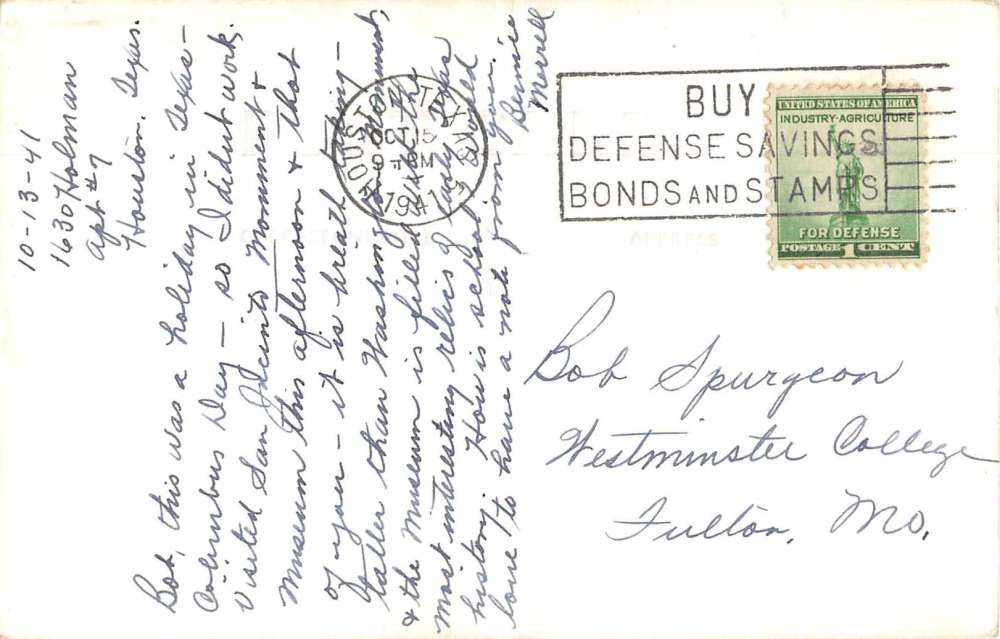 10-13-41
1630 Holman
Apt #7
Houston, Texas.
Bob, this was a holiday in Texas –
Columbus Day – so I didnt work.
Visited San Jacinto Monument &
Museum this afternoon & thot
of you – it is breath taking –
taller than Washington Monument,
& the Museum is filled with the
most interesting relics of early Texas
history. How is school? Would
love to have a note from you.
Bennie
Merrell
HOUSTON, TEXAS
OCT 15
1941
3
BUY
DEFENSE SAVINGS
BONDS AND STAMPS
UNITED STATES OF AMERICA
INDUSTRY·AGRICULTURE
FOR DEFENSE
POSTAGE 1 CENT
Bob Spurgeon
Westminster College
Fulton, Mo.